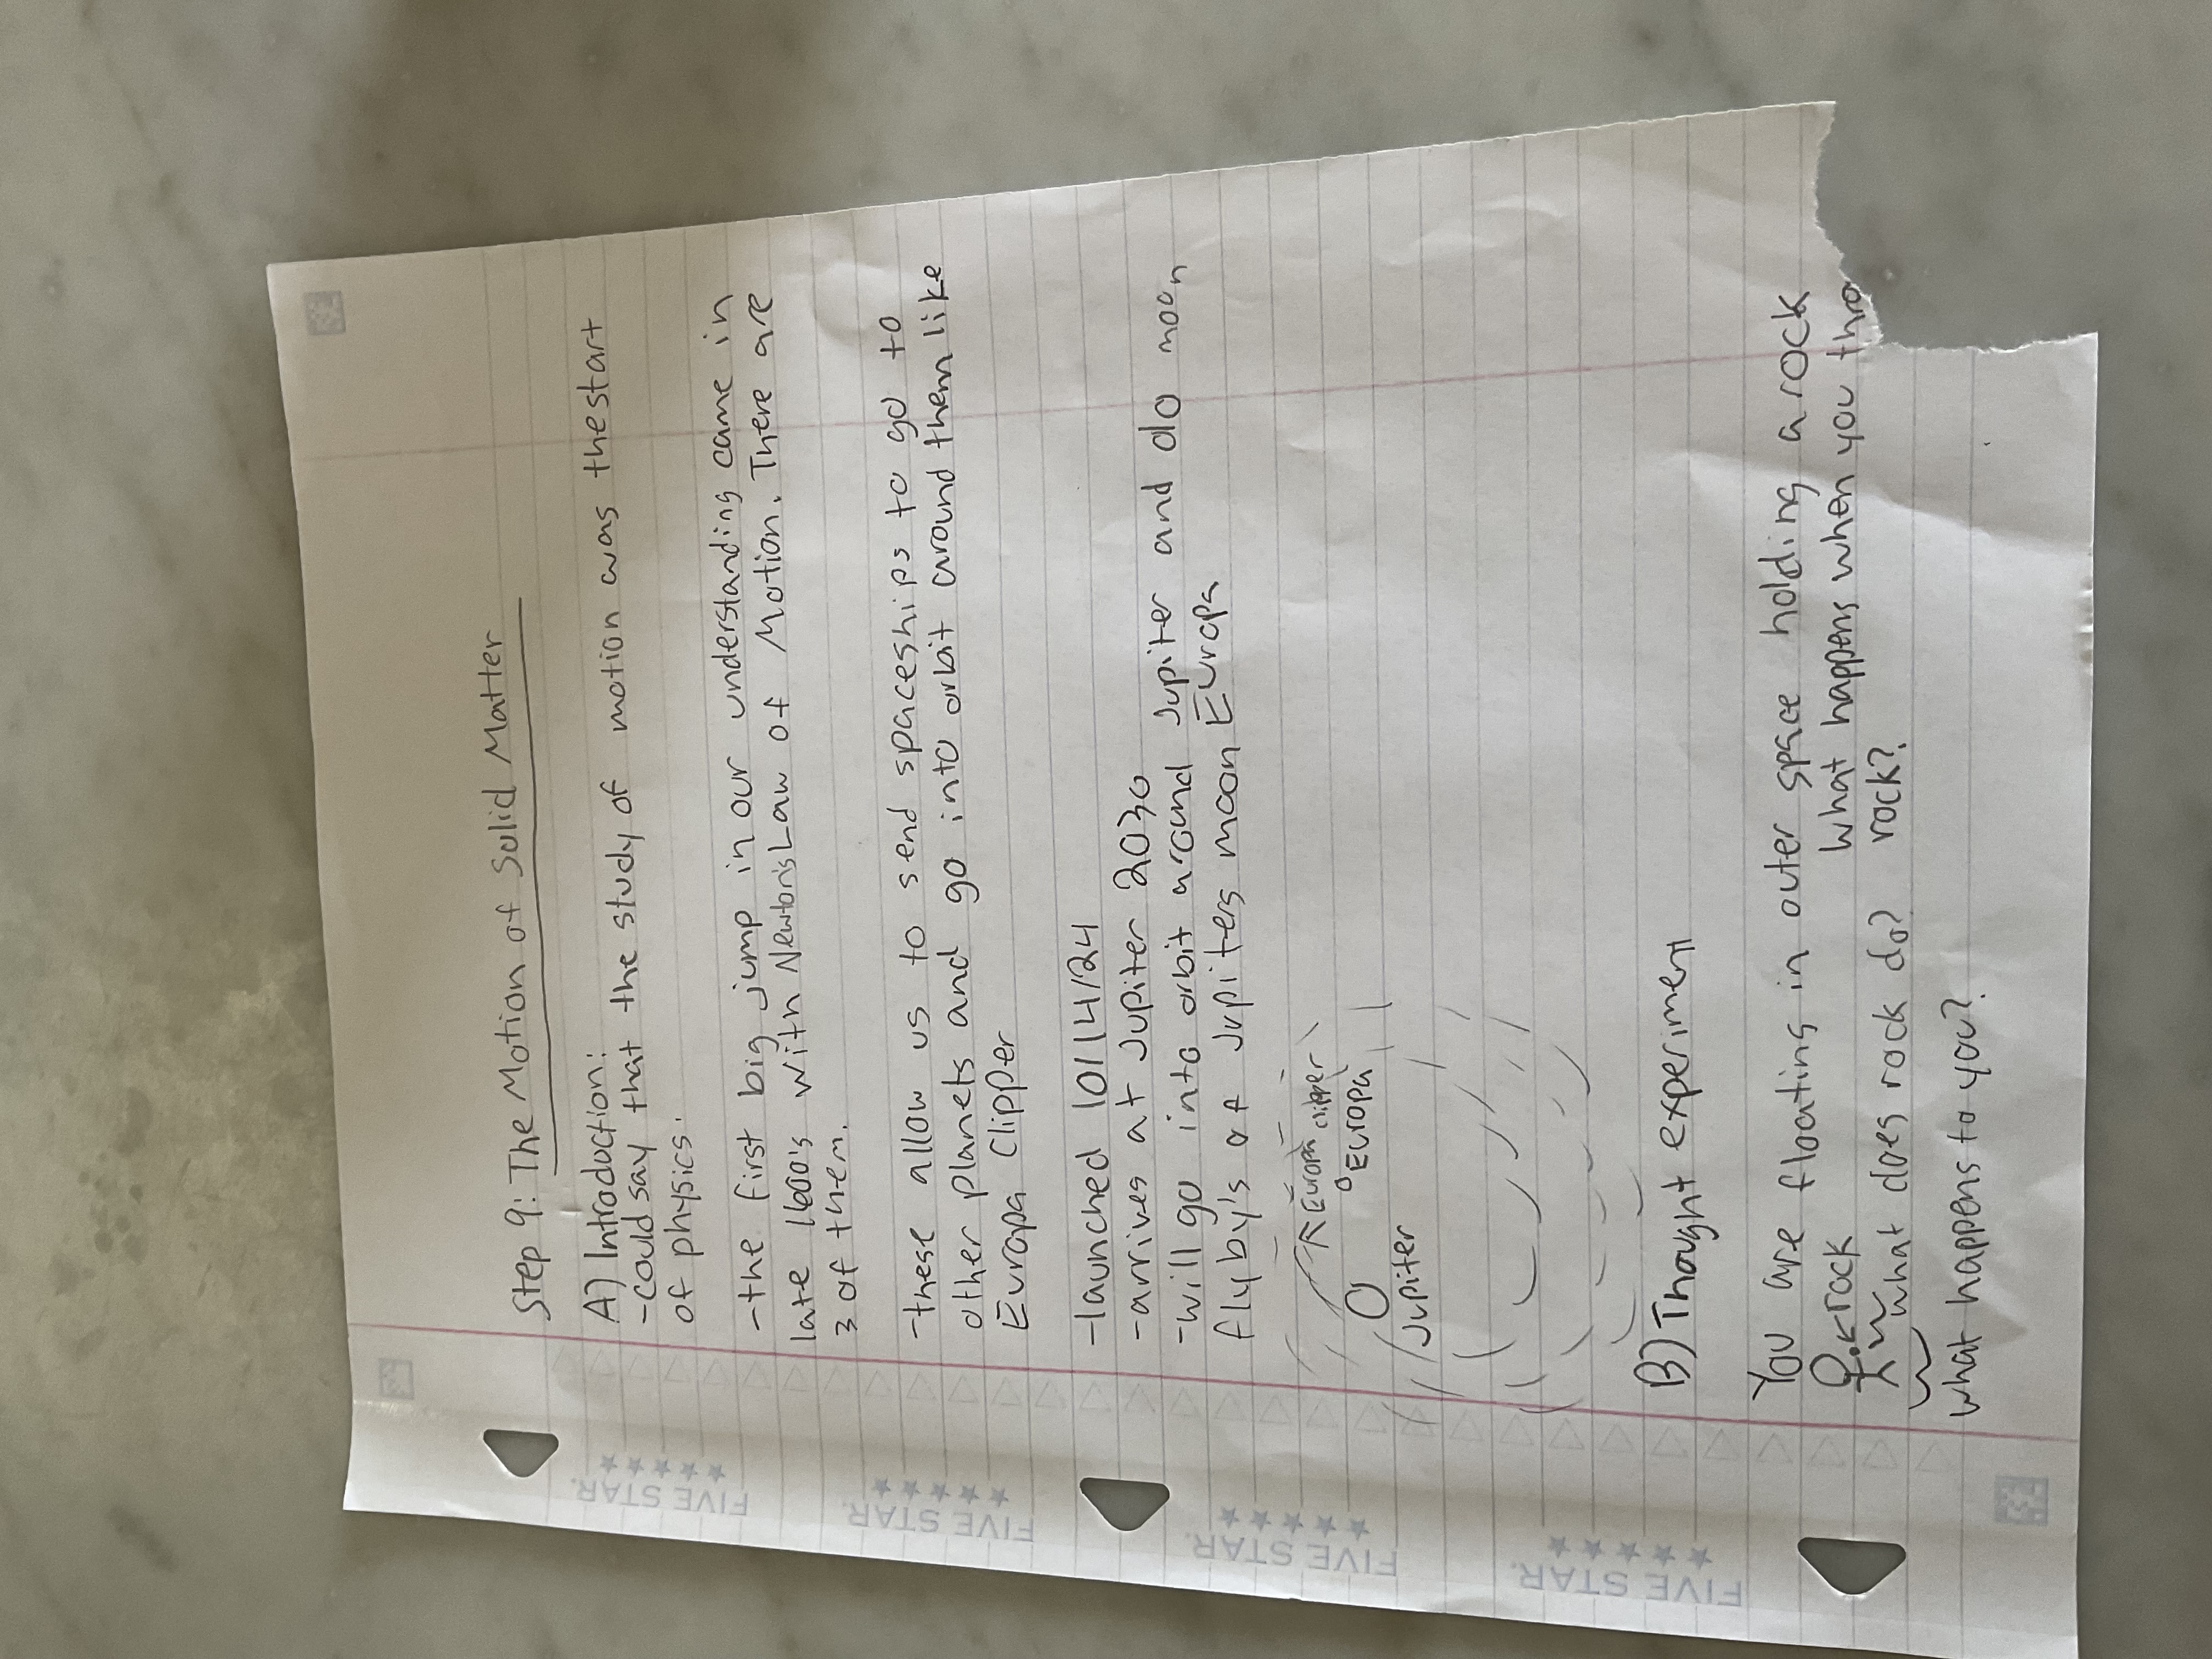 Step 9: The Motion of Solid Matter
A) Introduction:
-could say that the study of motion was the start
of physics.
-the first big jump in our understanding came in
late 1600's with Newton's Law of Motion. There are
3 of them.
-these allow us to send spaceships to go to
other planets and go into orbit around them like
Europa Clipper
-launched 10/14/24
-arrives at Jupiter 2030
-will go into orbit around Jupiter and do moon
flyby's of Jupiters moon Europa
Europa clipper
Europa
Jupiter
B) Thought experiment
You are floating in outer space holding a rock
rock
what happens when you thro
what does rock do? rock?
what happens to you?
FIVE STAR.
FIVE STAR.
FIVE STAR.
FIVE STAR.